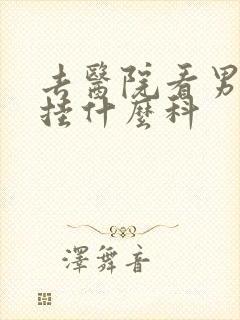 去醫院看男
挂什麼科
澤舞音